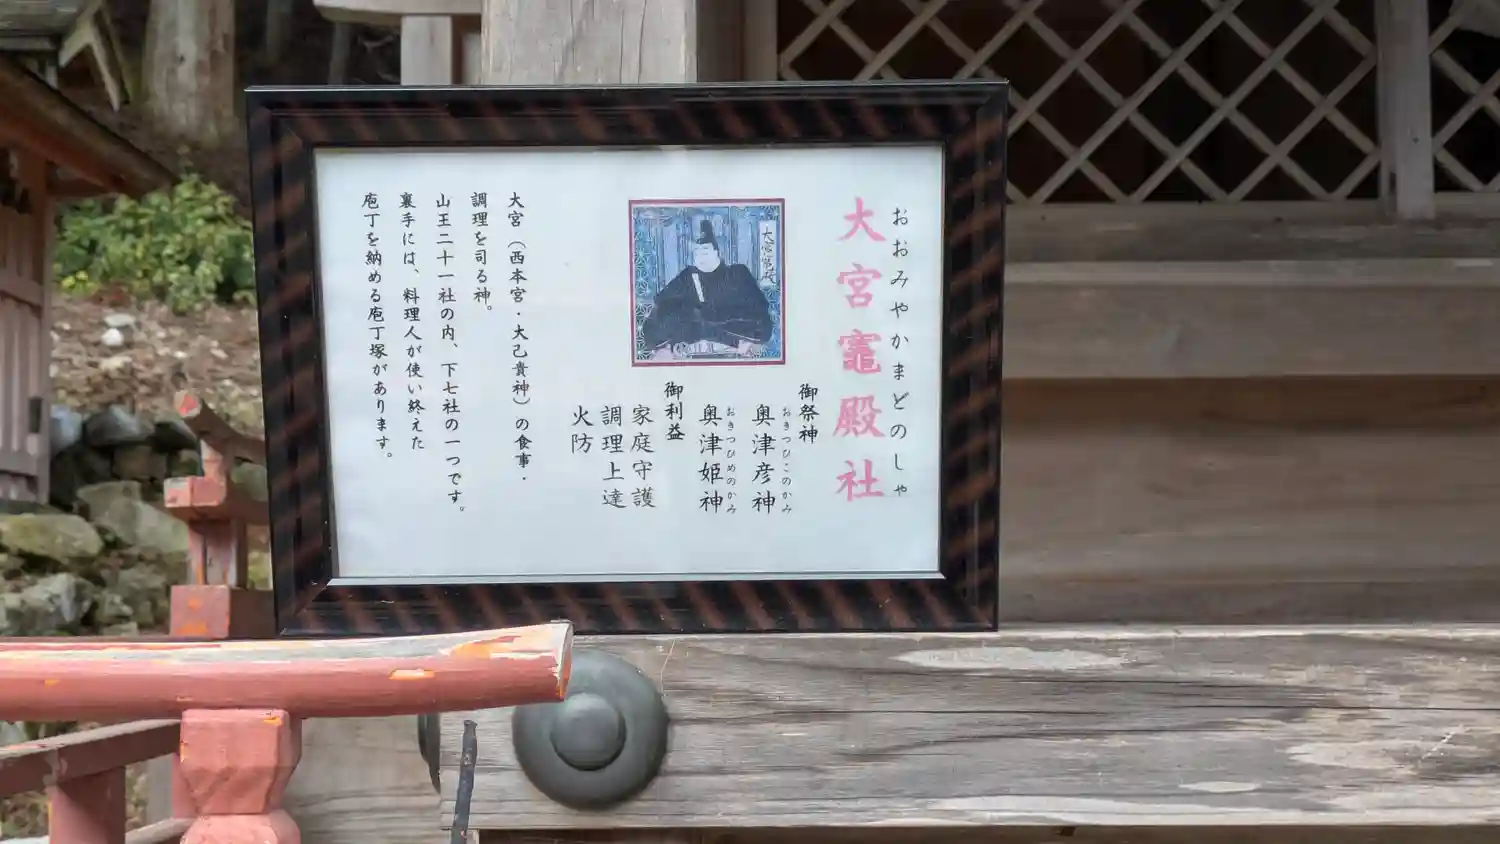 おおみやかまどのしゃ
大宮竈殿社
大宮竈殿
御祭神
おきつひこのかみ
奥津彦神
おきつひめのかみ
奥津姫神
御利益
家庭守護
調理上達
火防
大宮（西本宮・大己貴神）の食事・
調理を司る神。
山王二十一社の内、下七社の一つです。
裏手には、料理人が使い終えた
庖丁を納める庖丁塚があります。